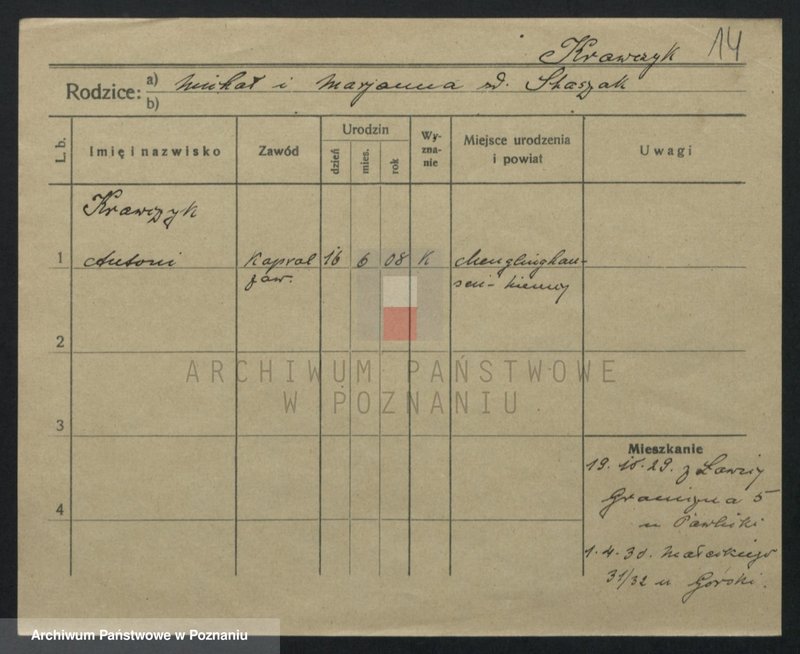 Krawczyk 14
Rodzice: a) Michał i Marjanna zd. Staszak
b)
L. b.
Imię i nazwisko
Zawód
Urodzin
dzień
mies.
rok
Wy-
zna-
nie
Miejsce urodzenia
i powiat
Uwagi
Krawczyk
1 Antoni kapral 16 6 08 K Menglinghau-
zaw. sen - Niemcy
2
3
4
Mieszkanie
19.10.29. z Ławicy
Graniczna 5
u Pawlicki
1.4.30. Małeckiego
31/32 u Górski.
ARCHIWUM PAŃSTWOWE
W POZNANIU
Archiwum Państwowe w Poznaniu